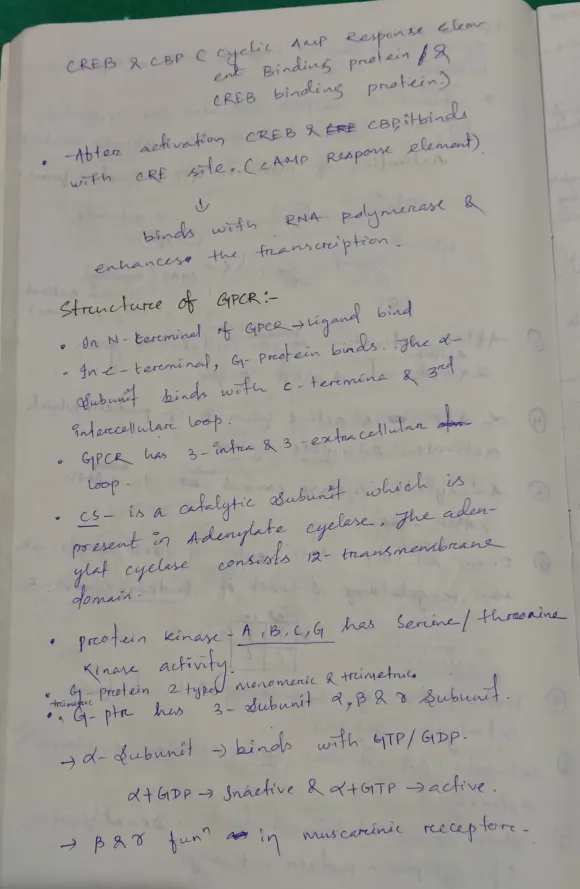 CREB & CBP ( Cyclic AMP Response Elem
ent Binding protein / &
CREB binding protein.)
• -After activation CREB & CBP, it binds
with CRE site. (CAMP Response element).
↓
binds with RNA polymerase &
enhances the transcription.
Structure of GPCR:-
• In N-terminal of GPCR → Ligand bind
• In C-terminal, G-Protein binds. The α-
Subunit binds with C-termina & 3rd
intercellular loop.
• GPCR has 3-intra & 3-extracellular
loop.
• CS - is a catalytic subunit which is
present in Adenylate cyclase. The aden-
ylat cyclase consists 12-transmembrane
domain.
• protein kinase - A, B, C, G has Serine/threonine
Kinase activity.
• G-protein 2 types monomeric & trimetric
• trimetric G-ptn has 3-Subunit α, β & γ Subunit.
→ α-Subunit → binds with GTP/GDP.
α+GDP → Inactive & α+GTP → active.
→ β & γ funⁿ in muscarinic receptor.